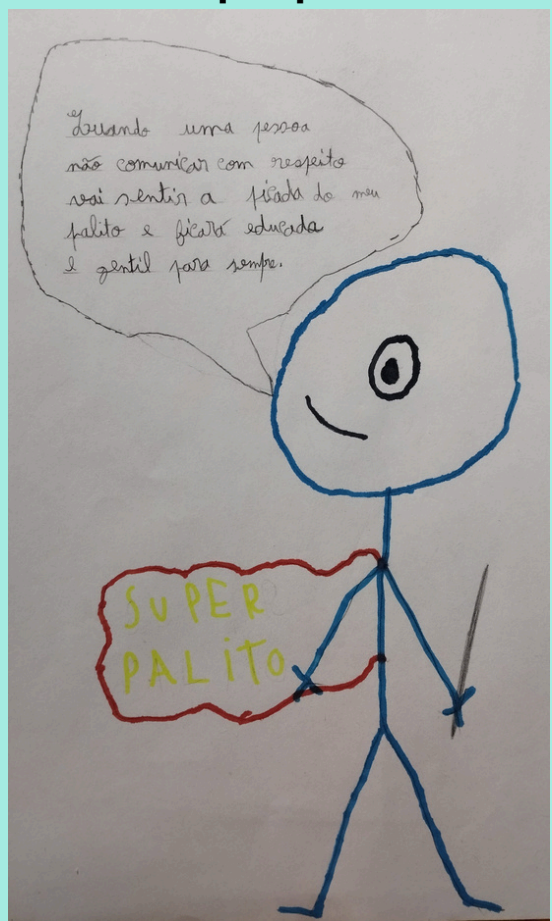 Quando uma pessoa
não comunicar com respeito
vai sentir a picada do meu
palito e ficará educada
e gentil para sempre.
SUPER
PALiTO